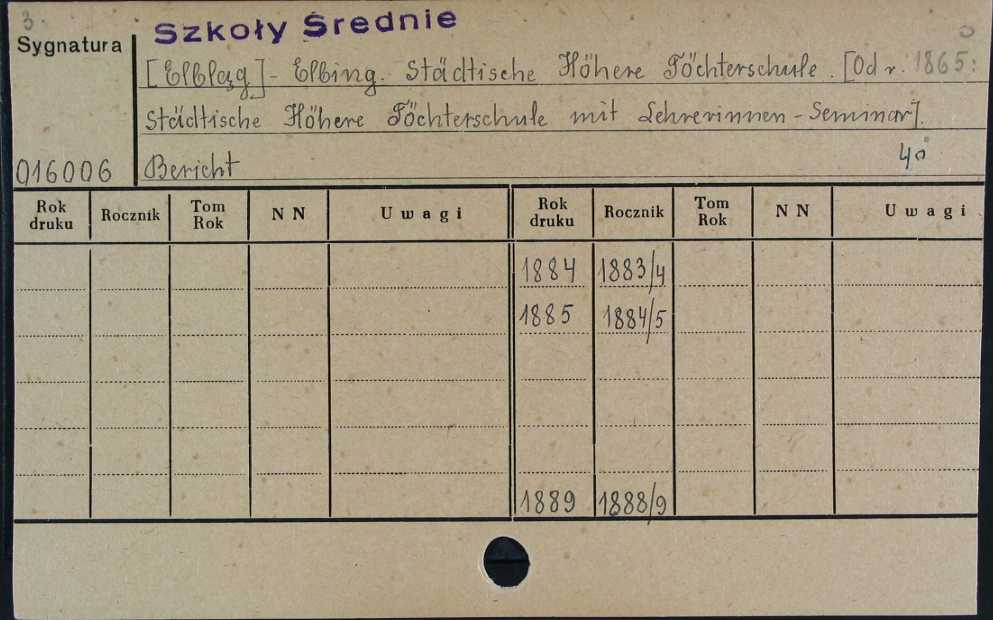 3.
Szkoły Średnie
Sygnatura
[Elbląg] - Elbing. Städtische Höhere Töchterschule. [Od r. 1865:
Städtische Höhere Töchterschule mit Lehrerinnen - Seminar].
016006 Bericht 4°
Rok druku Rocznik Tom Rok N N Uwagi Rok druku Rocznik Tom Rok N N Uwagi
1884 1883/4
1885 1884/5
1889 1888/9